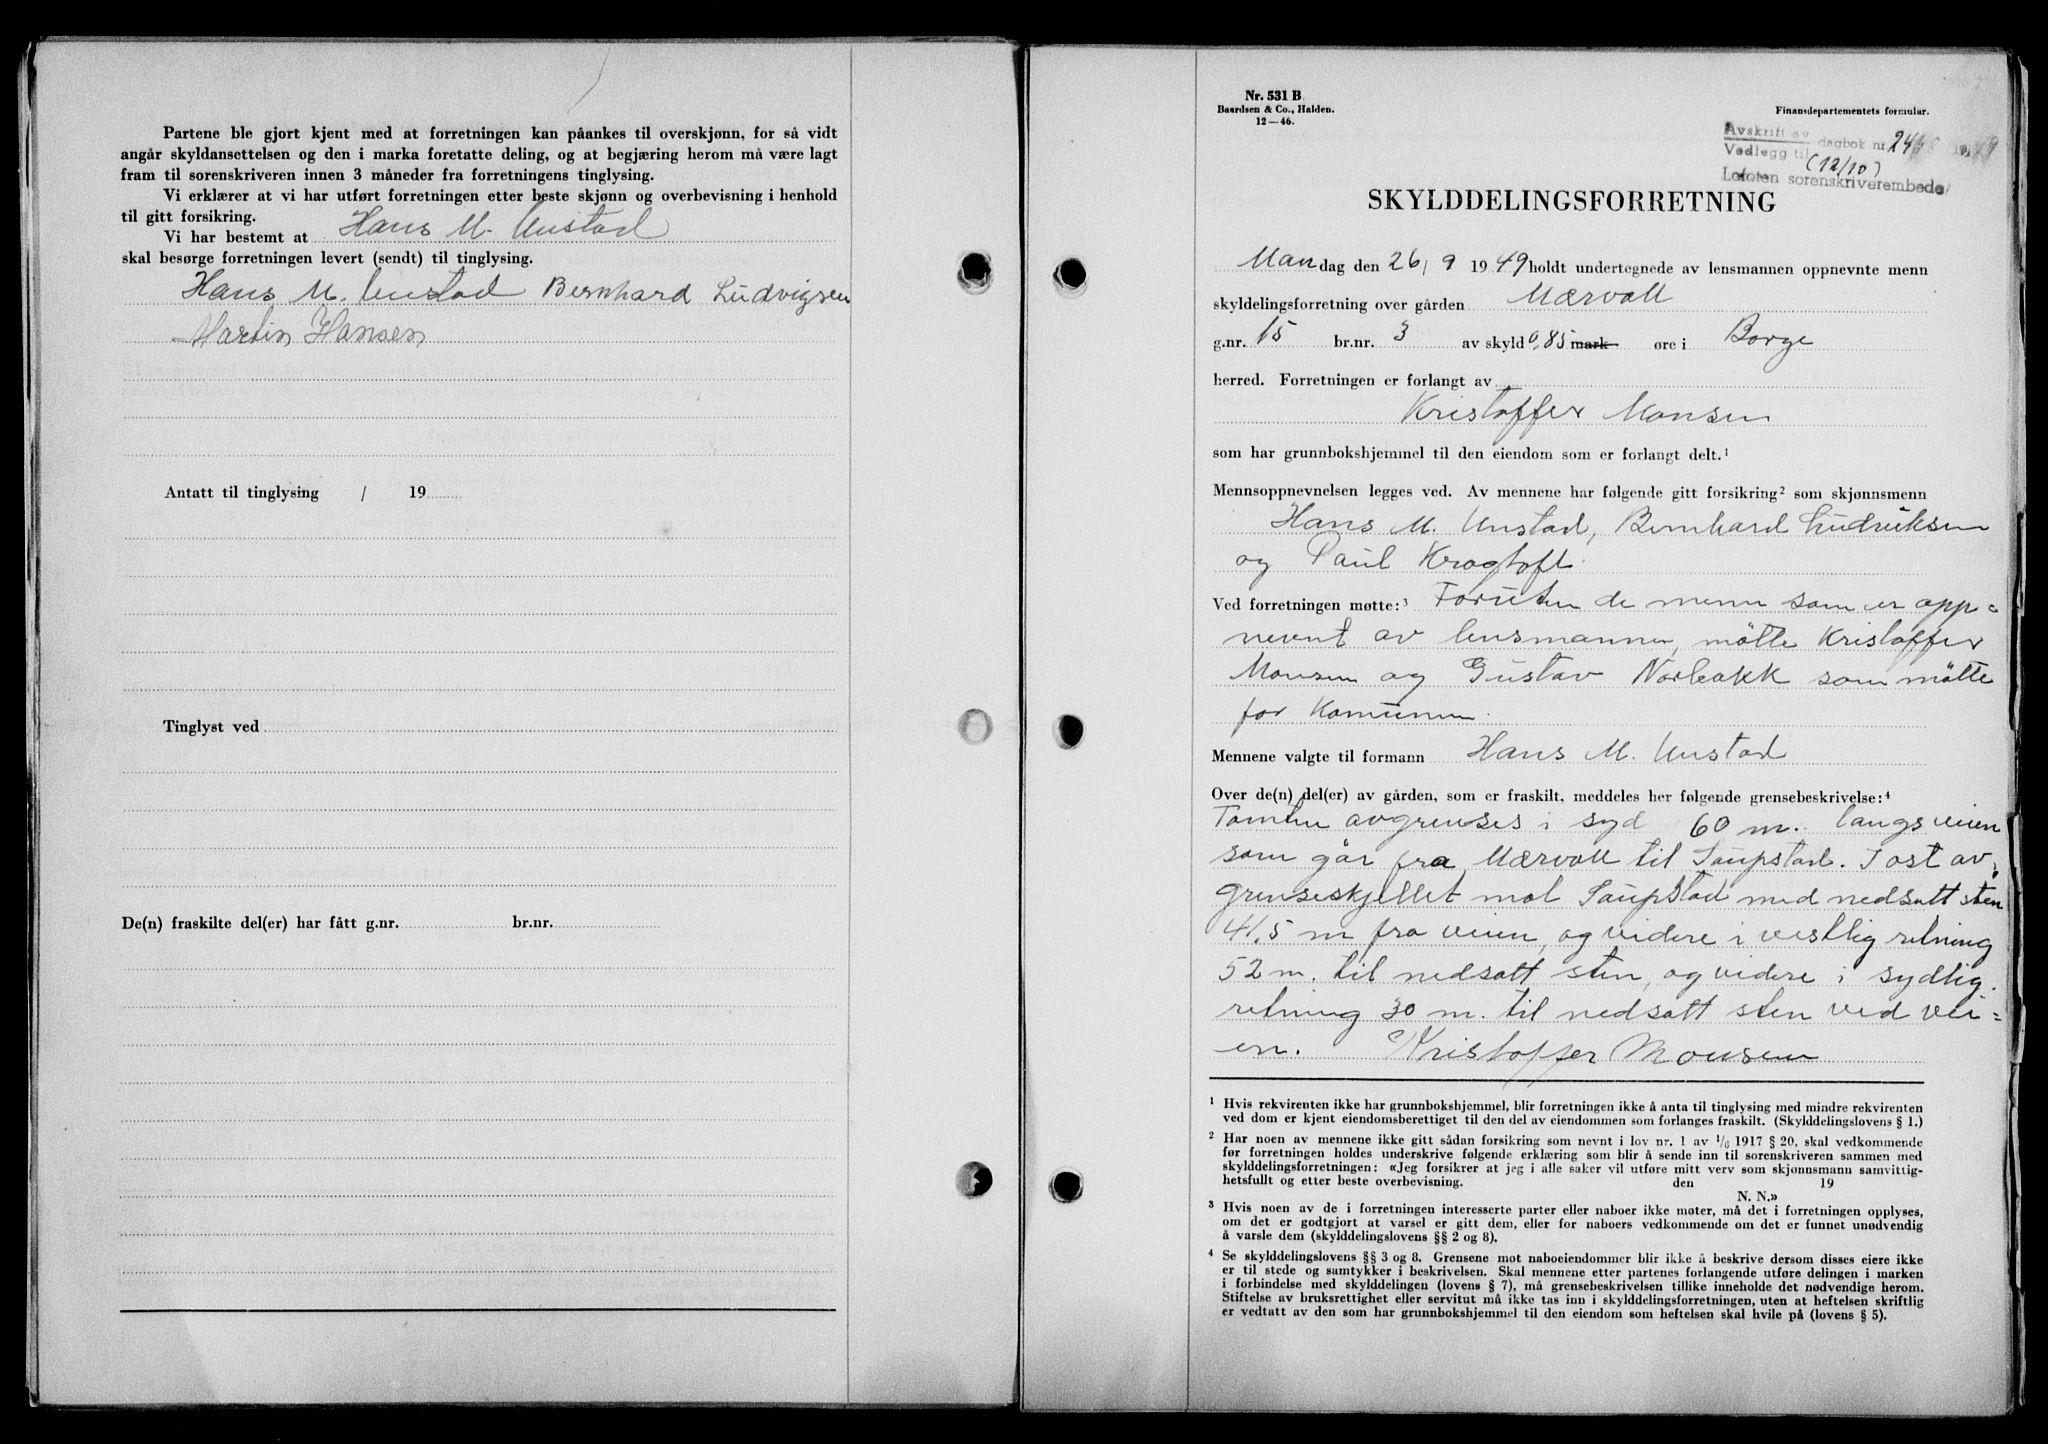 Partene ble gjort kjent med at forretningen kan påankes til overskjønn, for så vidt
angår skyldansettelsen og den i marka foretatte deling, og at begjæring herom må være lagt
fram til sorenskriveren innen 3 måneder fra forretningens tinglysing.
Vi erklærer at vi har utført forretningen etter beste skjønn og overbevisning i henhold
til gitt forsikring.
Vi har bestemt at Hans M. Unstad
skal besørge forretningen levert (sendt) til tinglysing.
Hans M. Unstad Bernhard Ludvigsen
Martin Hansen
Antatt til tinglysing / 19
Tinglyst ved
De(n) fraskilte del(er) har fått g.nr. br.nr.
Nr. 531 B
Baardsen & Co., Halden.
12—46.
Finansdepartementets formular.
Avskrift av
Vedlegg til dagbok nr.
(12/10)
Lofoten sorenskriverembede
SKYLDDELINGSFORRETNING
Man dag den 26/9 1949 holdt undertegnede av lensmannen oppnevnte menn
skyldelingsforretning over gården Mærvoll
g.nr. 15 br.nr. 3 av skyld 0,85 mark øre i Borge
herred. Forretningen er forlangt av
Kristoffer Monsen
som har grunnbokshjemmel til den eiendom som er forlangt delt.¹
Mennsoppnevnelsen legges ved. Av mennene har følgende gitt forsikring² som skjønnsmenn
Hans M. Unstad, Bernhard Ludviksen
og Paul Krogtoft.
Ved forretningen møtte:³ Foruten de menn som er opp=
nevnt av lensmannen, mötte Kristoffer
Monsen og Gustav Norbakk som mötte
for Komunen.
Mennene valgte til formann Hans M. Unstad
Over de(n) del(er) av gården, som er fraskilt, meddeles her følgende grensebeskrivelse:⁴
Tomten avgrenses i syd 60 m. langs veien
som går fra Mærvoll til Saupstad. I ost av
grenseskjellet mot Saupstad med nedsatt sten
41,5 m fra veien, og videre i vestlig retning
52 m. til nedsatt sten, og videre i sydlig
retning 30 m. til nedsatt sten ved vei=
en. Kristoffer Monsen
¹ Hvis rekvirenten ikke har grunnbokshjemmel, blir forretningen ikke å anta til tinglysing med mindre rekvirenten
ved dom er kjent eiendomsberettiget til den del av eiendommen som forlanges fraskilt. (Skylddelingslovens § 1.)
² Har noen av mennene ikke gitt sådan forsikring som nevnt i lov nr. 1 av ¹/₆ 1917 § 20, skal vedkommende
før forretningen holdes underskrive følgende erklæring som blir å sende inn til sorenskriveren sammen med
skylddelingsforretningen: «Jeg forsikrer at jeg i alle saker vil utføre mitt verv som skjønnsmann samvittig-
hetsfullt og etter beste overbevisning. den 19
N. N.»
³ Hvis noen av de i forretningen interesserte parter eller naboer ikke møter, må det i forretningen opplyses,
om det er godtgjort at varsel er gitt dem, eller for naboers vedkommende om det er funnet unødvendig
å varsle dem (skylddelingslovens §§ 2 og 8).
⁴ Se skylddelingslovens §§ 3 og 8. Grensene mot naboeiendommer blir ikke å beskrive dersom disses eiere ikke
er til stede og samtykker i beskrivelsen. Skal mennene etter partenes forlangende utføre delingen i marken
i forbindelse med skylddelingen (lovens § 7), må grensebeskrivelsen tillike inneholde det nødvendige herom.
Stiftelse av bruksrettighet eller servitut må ikke tas inn i skylddelingsforretningen, uten at heftelsen skriftlig
er vedtatt av den som har grunnbokshjemmel til den eiendom som heftelsen skal hvile på (lovens § 5).